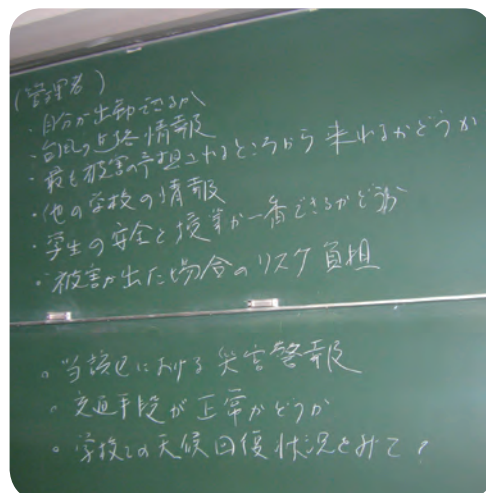 (管理者)
・自分が出勤できるか
・台風の進路情報
・最も被害の予想されるところから来れるかどうか
・他の学校の情報
・学生の安全と授業が一番できるかどうか
・被害が出た場合のリスク負担
・当該地における災害警報
・交通手段が正常かどうか
・学校の天候回復状況をみて?